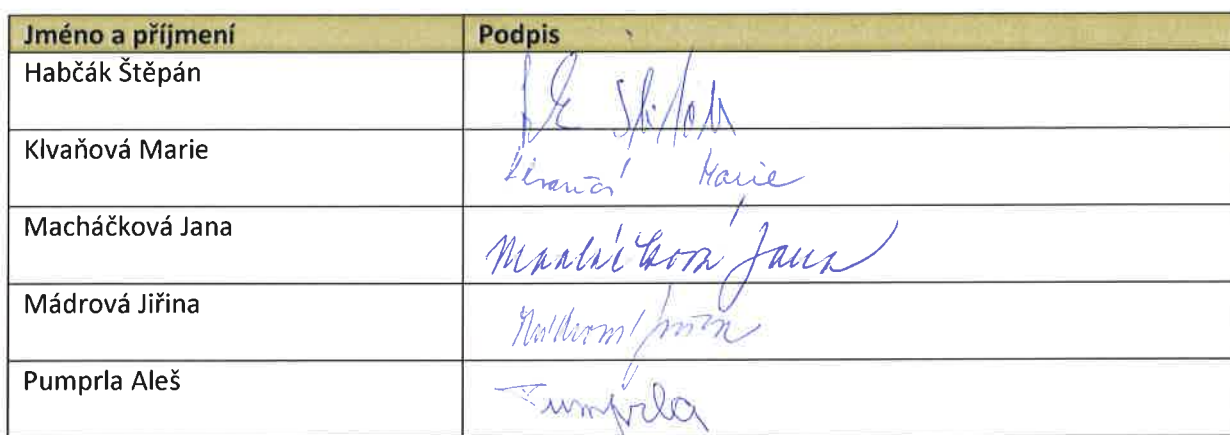 Jméno a příjmení Podpis
Habčák Štěpán
Klvaňová Marie Marie
Macháčková Jana Macháčková Jana
Mádrová Jiřina
Pumprla Aleš Pumprla